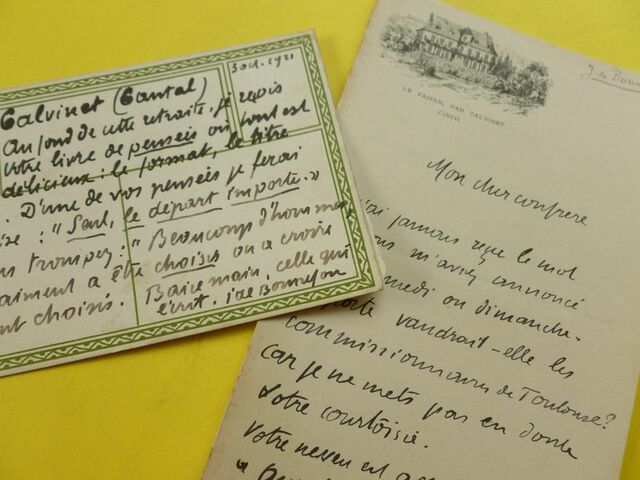 3 oct. 1921
Calvinet (Cantal)
Au fond de cette retraite je reçois
votre livre de pensées où tout est
délicieux : le format, le titre
. D'une de vos pensées je ferai
: "Seul, le départ importe."
trompez : "Beaucoup d'hommes
aiment à être choisis on a croire
nt choisis. Baise main, celle qui
écrit. J de Bonnefon
J. de Bonn
LE PAISAN, PAR CALVINET
CANTAL
Mon cher confrère
j'ai jamais reçu le mot
m'avez annoncé
medi ou dimanche.
vaudrait-elle les
commissionnaires de Toulouse ?
car je ne mets pas en doute
votre courtoisie.
Votre neveu est